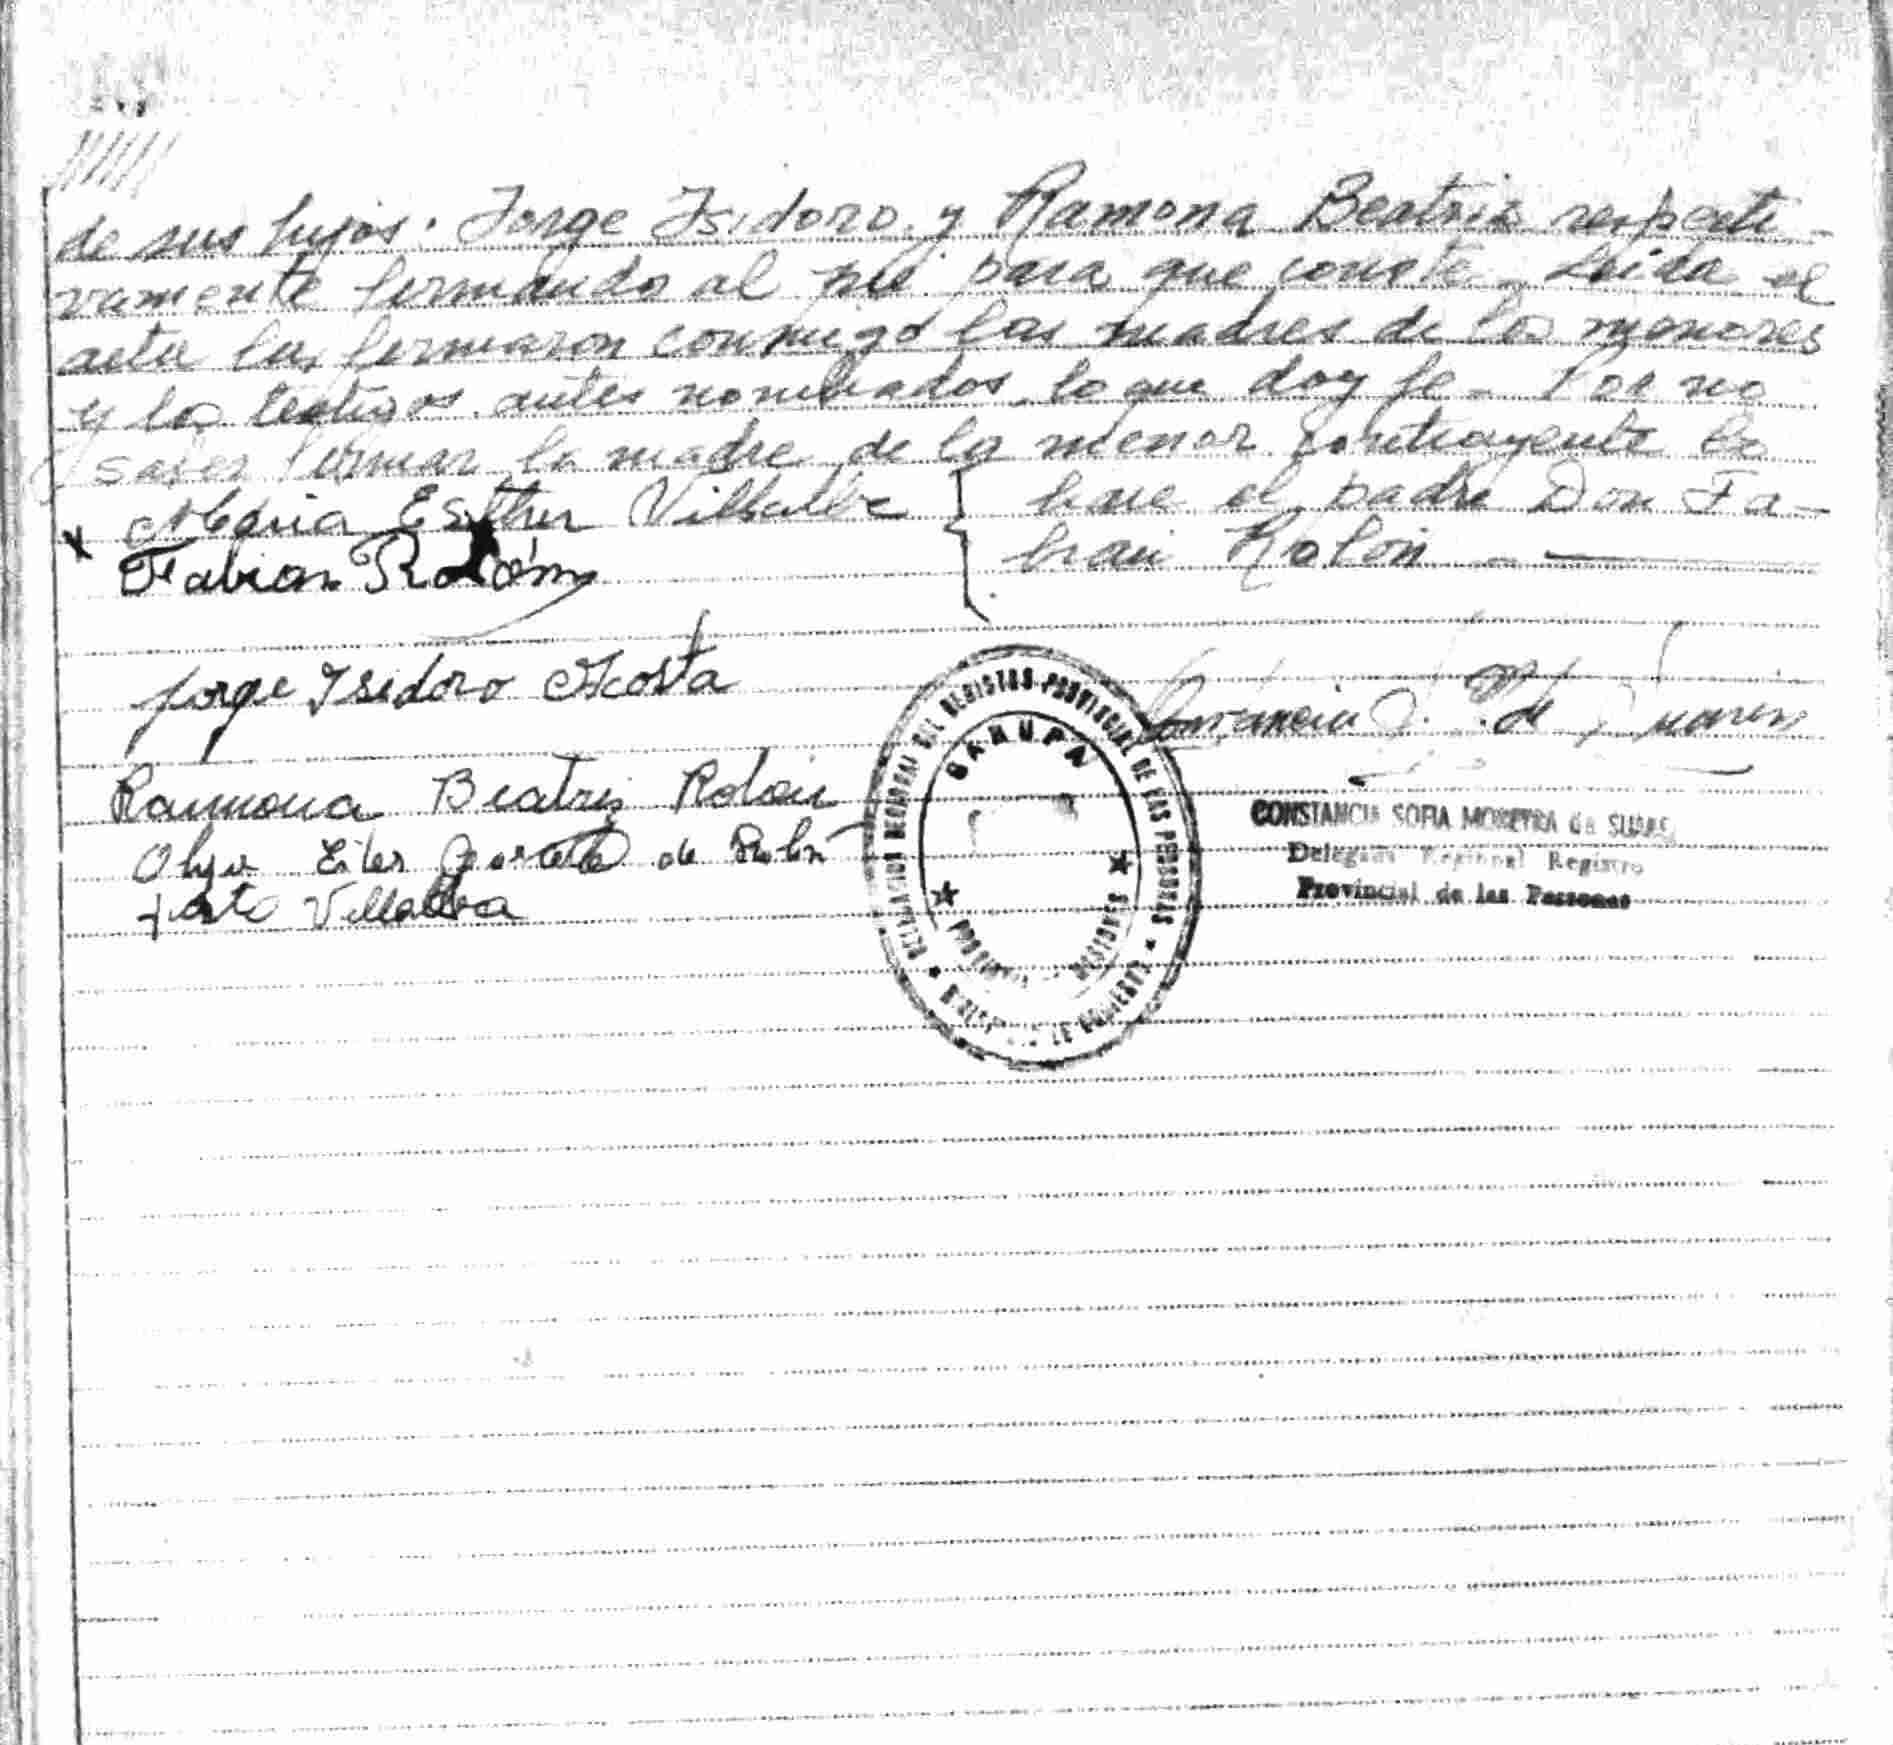 de sus hijos. Jorge Isidoro y Ramona Beatriz respecti-
vamente firmando al pie para que conste. Leida el
acta la firmaron conmigo las madres de los menores
y los testigos antes nombrados, lo que doy fe - Por no
saber firmar la madre de la menor contrayente lo
hace el padre Don Fa-
bian Rolon
x Maria Esther Villalba
Fabian Rolón
Jorge Isidoro Acosta
Ramona Beatriz Rolón
de Rolón
Villalba
DELEGACION REGIONAL DEL REGISTRO PROVINCIAL DE LAS PERSONAS
GARUPA
PROVINCIA MISIONES
CONSTANCIA SOFIA MOREYRA de SUAREZ
Delegada Regional Registro
Provincial de las Personas